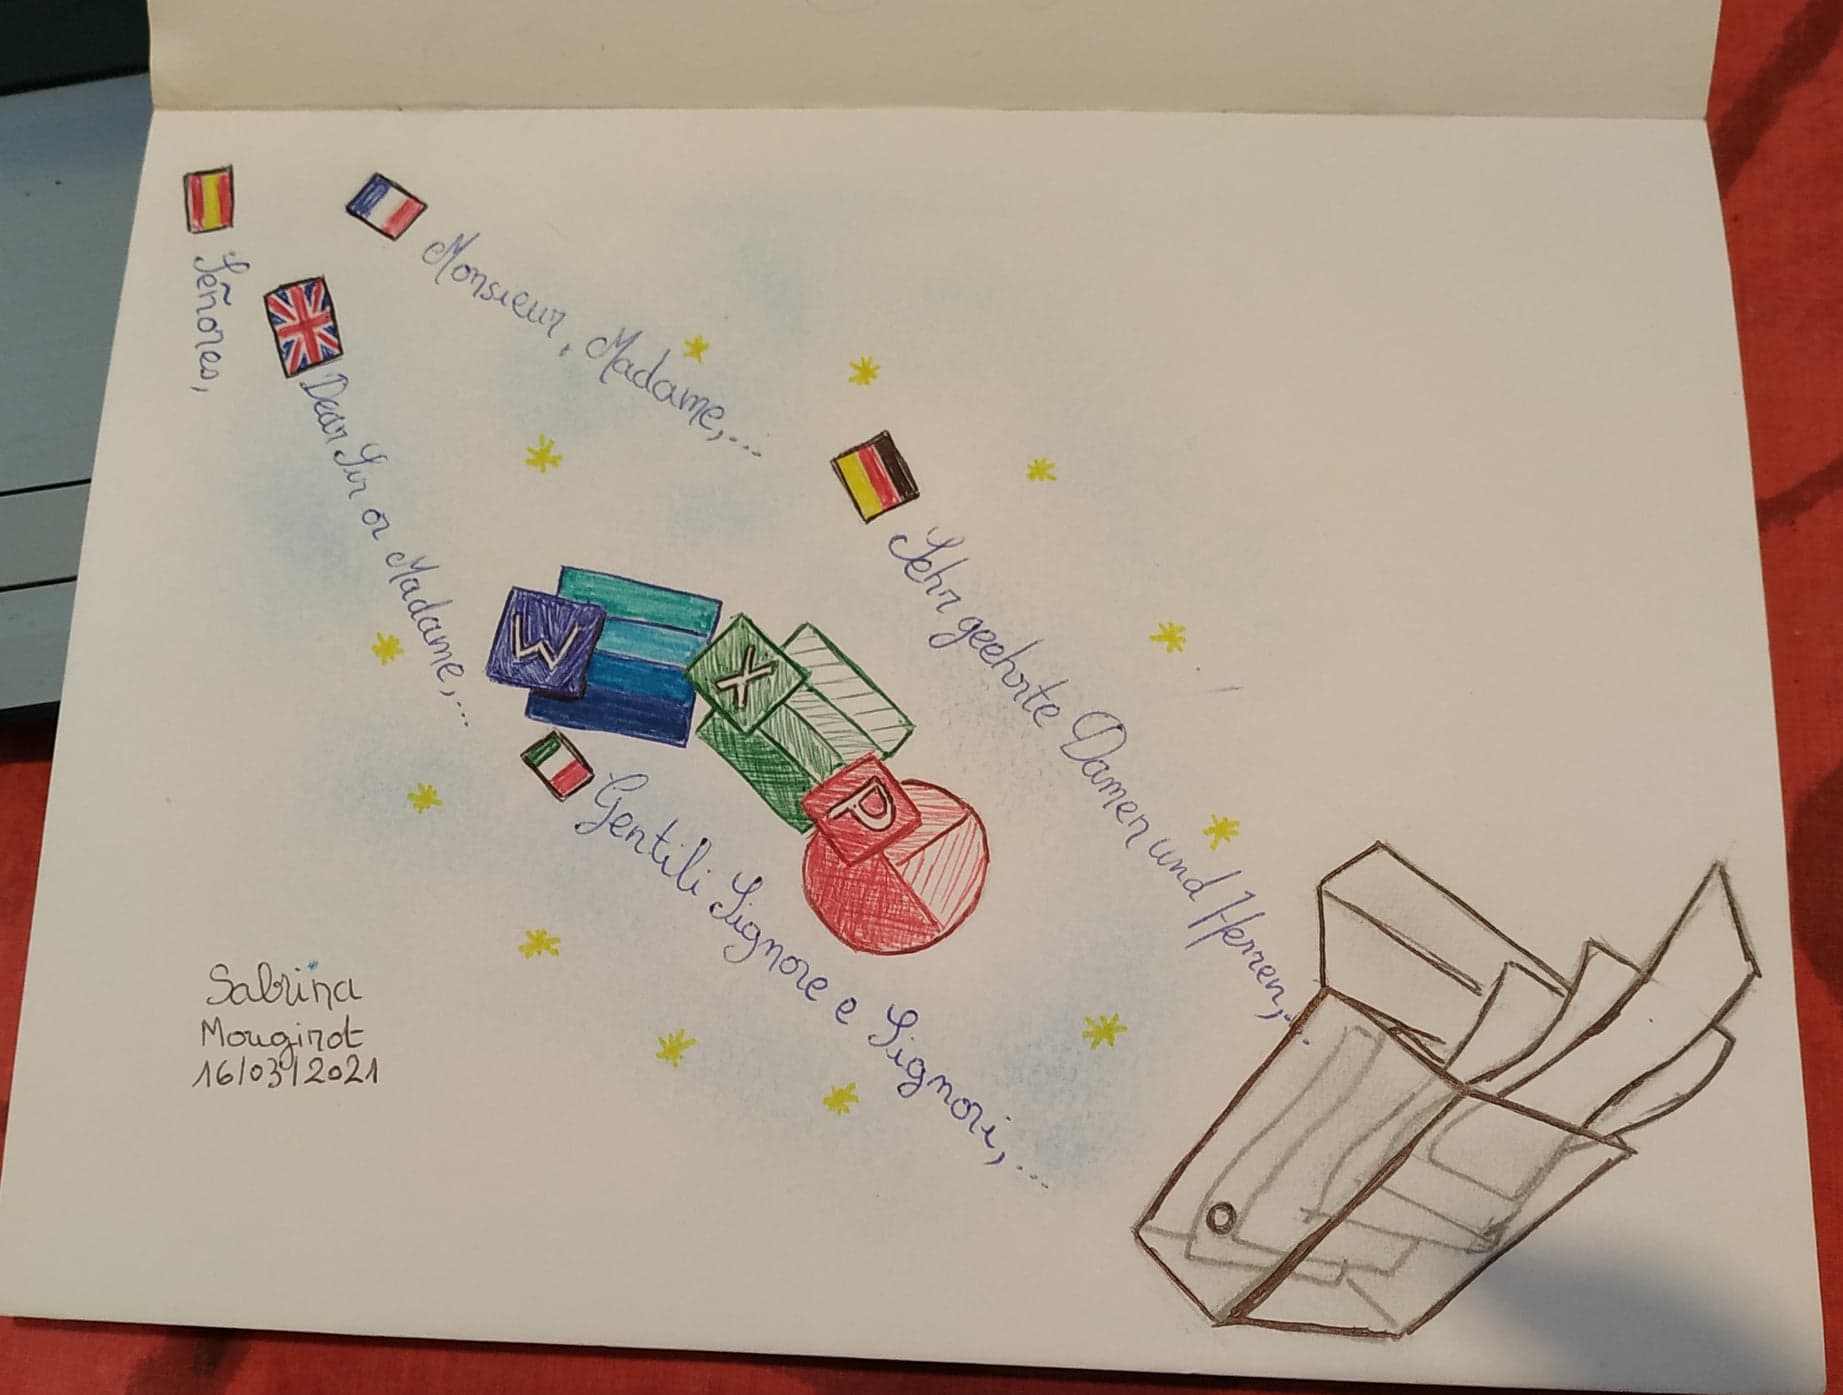 Señores,
Monsieur, Madame,...
Dear Sir or Madame,...
Sehr geehrte Damen und Herren,...
W
X
P
Gentili Signore e Signori,...
Sabrina
Mouginot
16/03/2021